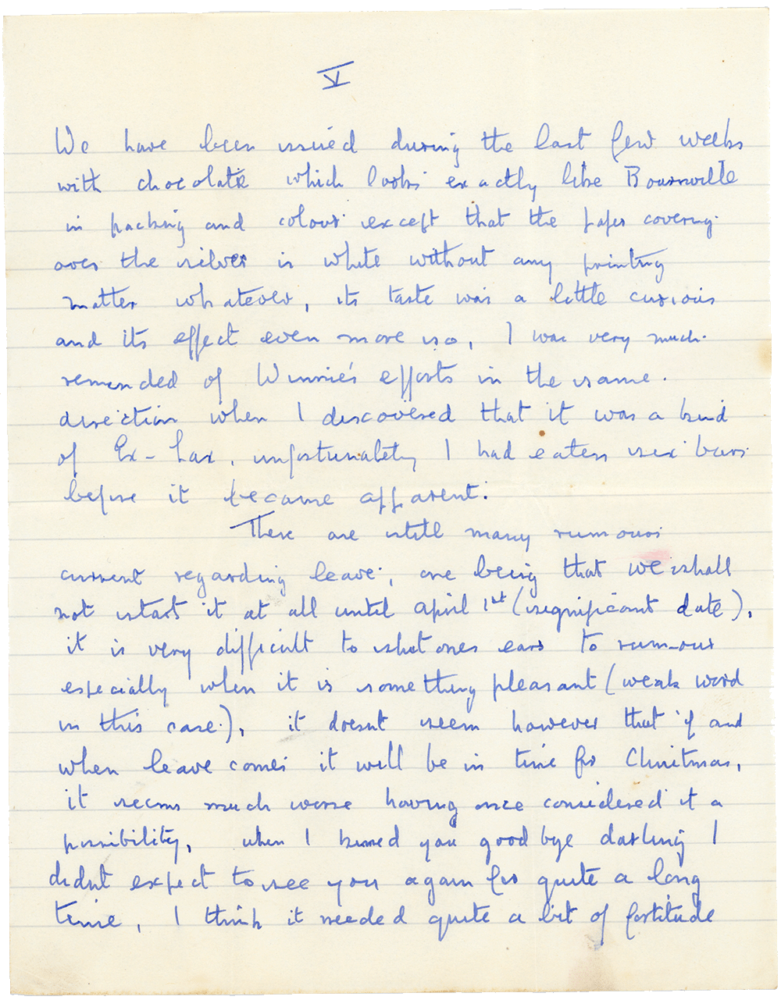 V
We have been issued during the last few weeks
with chocolate which looks exactly like Bournville
in packing and colour except that the paper covering
over the silver is white without any printing
matter whatever, its taste was a little curious
and its effect even more so, I was very much
reminded of Winnie's efforts in the same
direction when I discovered that it was a kind
of Ex-Lax, unfortunately I had eaten six bars
before it became apparent.
There are still many rumours
current regarding leave, one being that we shall
not start it at all until April 1st (significant date),
it is very difficult to shut ones ears to rumours
especially when it is something pleasant (weak word
in this case), it doesnt seem however that if and
when leave comes it will be in time for Christmas,
it seems much worse having once considered it a
possibility, when I kissed you goodbye darling I
didnt expect to see you again for quite a long
time, I think it needed quite a bit of fortitude